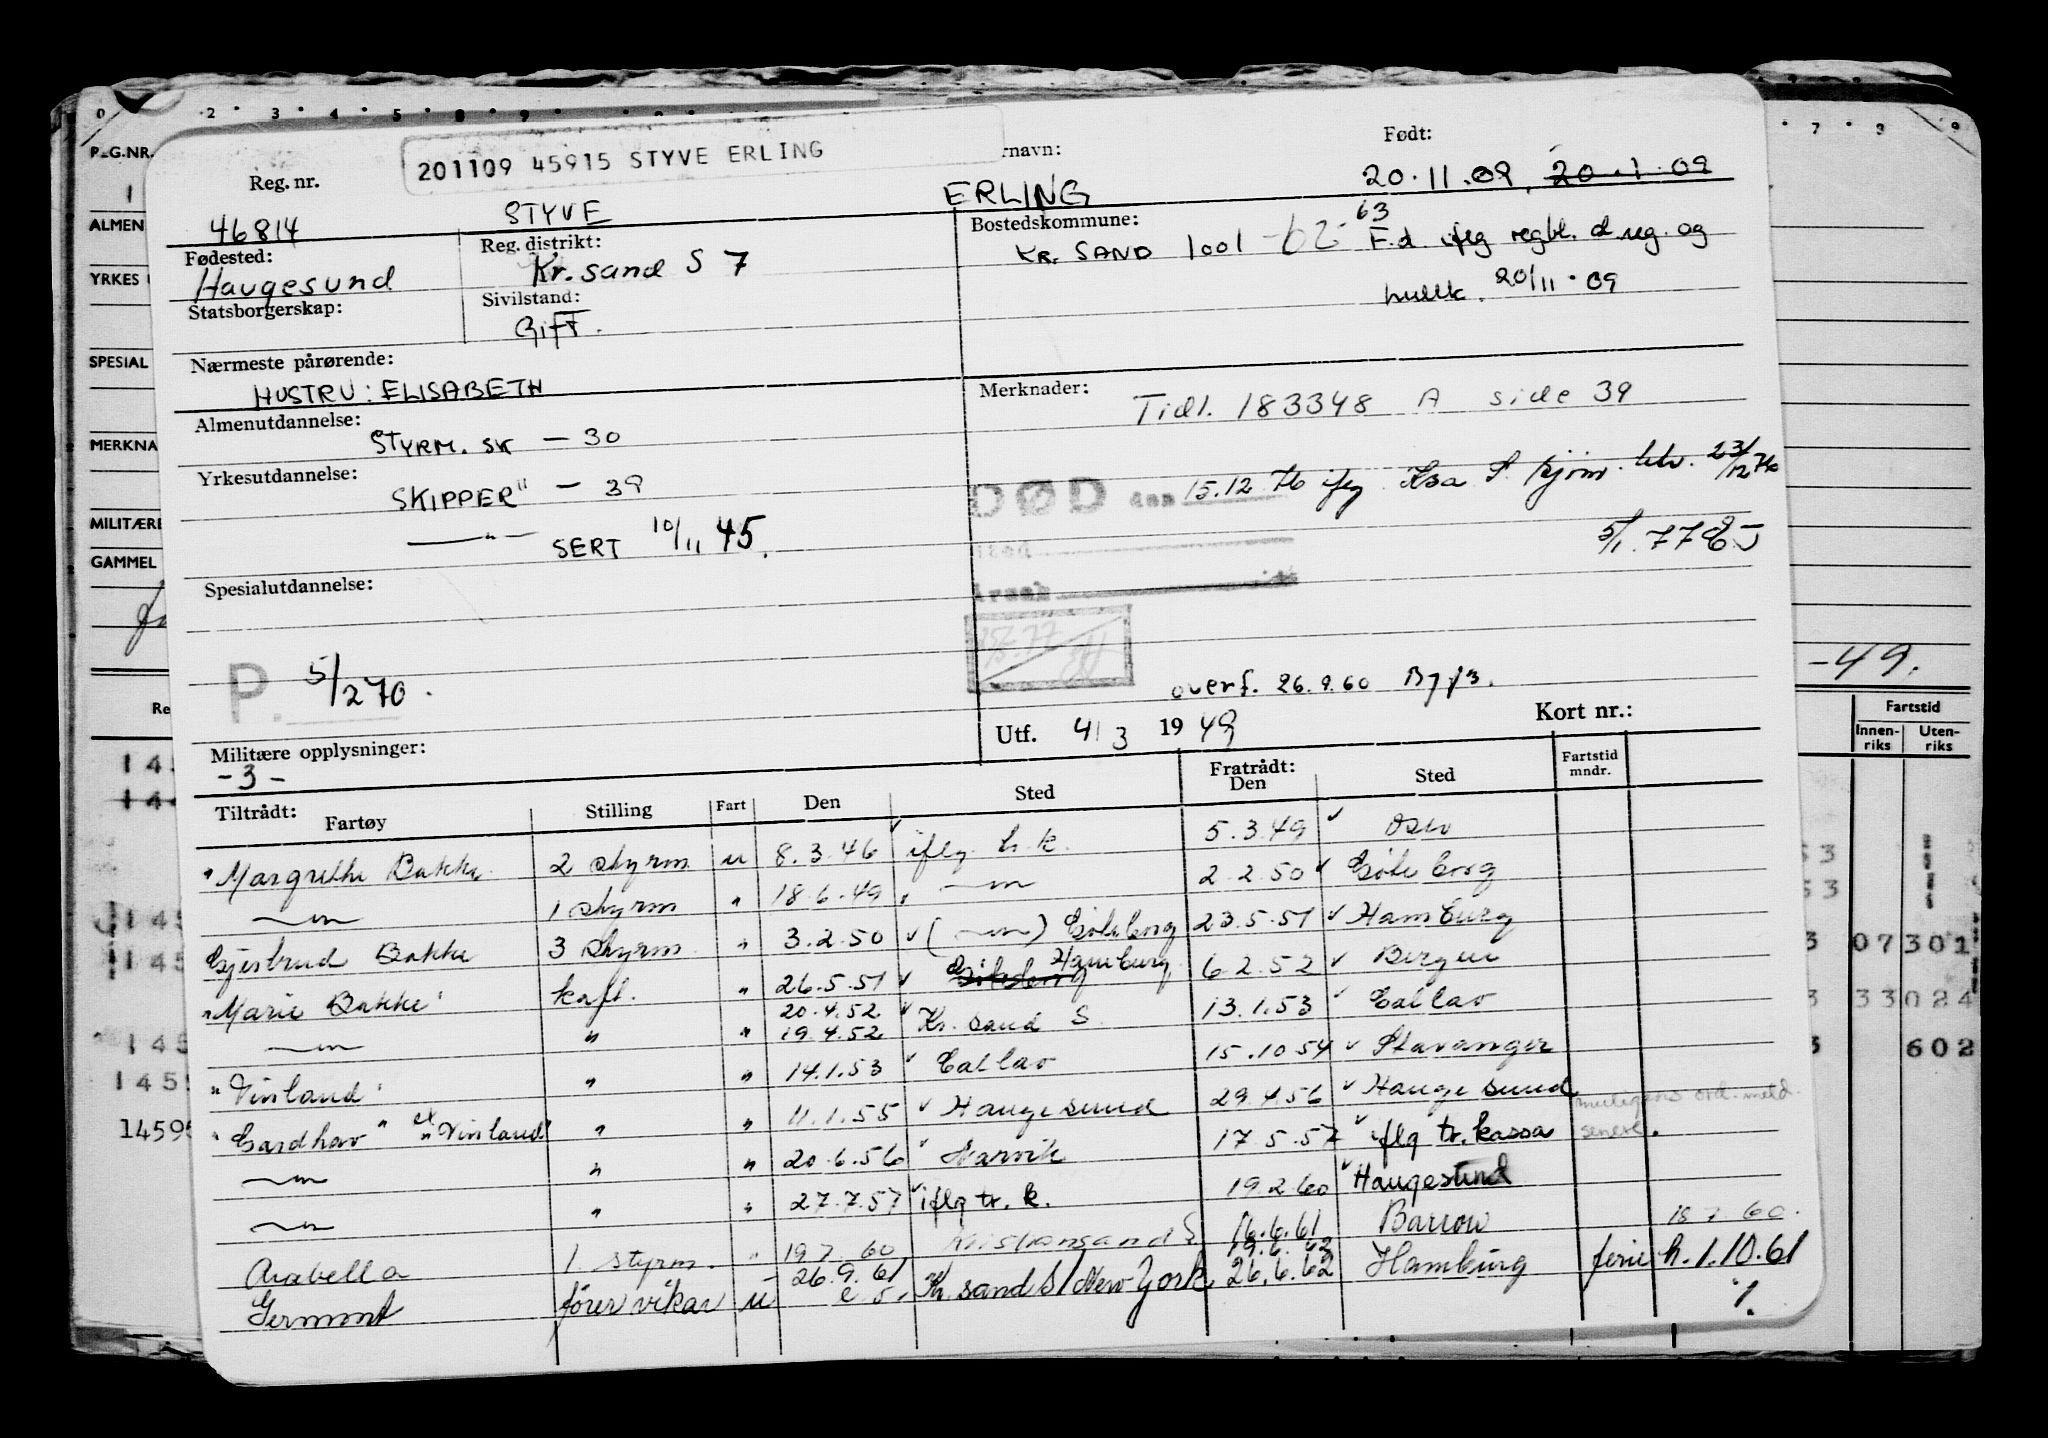 201109 45915 STYVE ERLING
Reg. nr. rnavn: Født:
46814 STYVE ERLING 20.11.09, 20.1.09
Fødested: Reg. distrikt: Bostedskommune:
Haugesund Kr.sand S 7 KR. SAND 1001 -62- 63 F.d. iflg regbl. d reg. og
20/11-09
Statsborgerskap: Sivilstand:
Gift.
Nærmeste pårørende:
HUSTRU: ELISABETH
Merknader:
Tidl. 183348 A side 39
Almenutdannelse:
STYRM. SK - 30
Yrkesutdannelse:
SKIPPER " - 39
DØD den 15.12 76 iflg Ksa S. 23/12 76
5/1. 77
— " — SERT 10/11 45.
Spesialutdannelse:
P. 5/2 70.
overf. 26.9.60
Utf. 4/3 1949 Kort nr.:
Militære opplysninger:
- 3 -
Tiltrådt: Fartøy Stilling Fart Den Sted Fratrådt: Den Sted Fartstid mndr.
"Margrethe Bakke 2 styrm u 8.3.46 iflg. h.k. 5.3.49 Oslo
—"— 1 styrm " 18.6.49 —"— 2.2.50 Göteborg
Gjertrud Bakke 3 styrm " 3.2.50 (—"—) Göteborg 23.5.51 Hamburg
"Marie Bakke" kaft. " 26.5.51 Göteborg Hamburg 6.2.52 Bergen
—"— " " 20.4.52 19.4.52 Kr. sand S. 13.1.53 Callao
"Vinland" " " 14.1.53 Callao 15.10.54 Stavanger
"Gardhav" ex "Vinland" " " 11.1.55 Haugesund 29.4.56 Haugesund
—"— " " 20.6.56 Narvik 17.5.57 iflg tr. kassa senere.
—"— " " 27.7.57 iflg tr. k. 19.2.60 Haugesund
Arabella 1. styrm. " 19.7.60 Kristiansand S 16.6.61 Barrow 18.7.60.
Germont fører vikar u 26.9.61 Kr.sand S/New York 19.6.62 26.6.62 Hamburg ferie h. 1.10.61
REG.NR.
ALMEN
YRKES
SPESIAL
MERKNA
MILITÆRE
GAMMEL
-49.
Fartstid
Innen-riks Uten-riks
07 301
33 024
602
1459